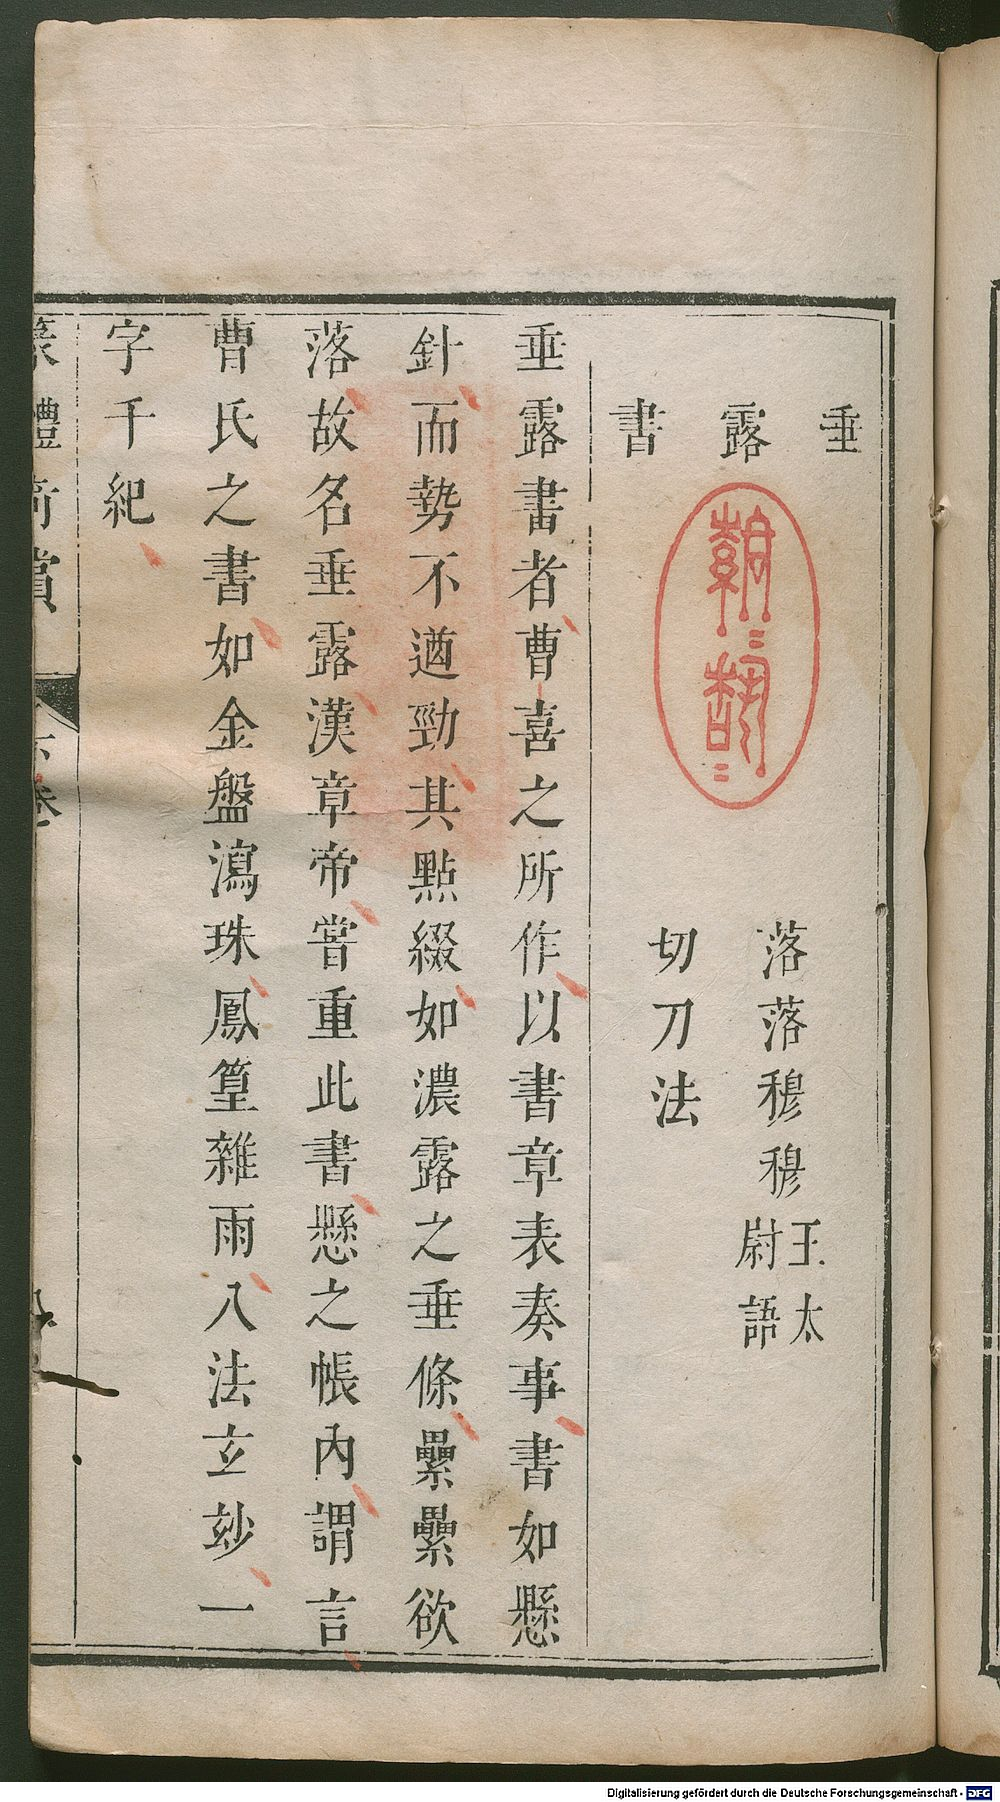 垂露書
落落穆穆王太尉語
切刀法
垂露書者曹喜之所作以書章表奏事書如懸
針而勢不遒勁其點綴如濃露之垂條纍纍欲
落故名垂露漢章帝嘗重此書懸之帳內謂言
曹氏之書如金盤瀉珠鳳篁雜雨八法立玅一
字千紀
篆體 賞
卷
Digitalisierung gefördert durch die Deutsche Forschungsgemeinschaft - DFG